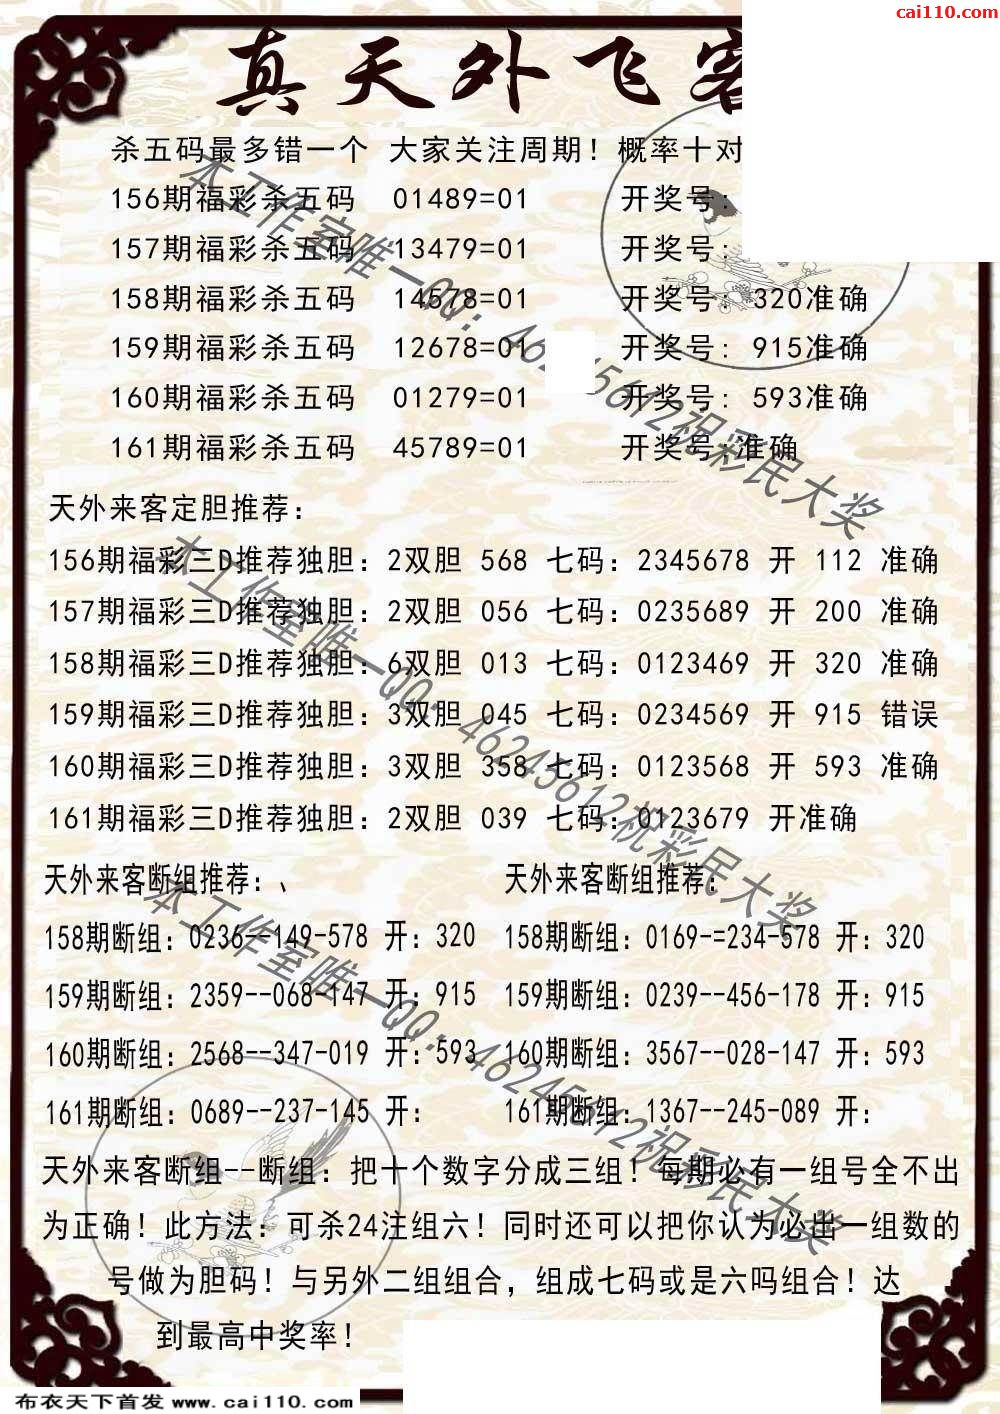 cai110.com
真天外飞客
杀五码最多错一个 大家关注周期！概率十对
156期福彩杀五码 01489=01 开奖号：
157期福彩杀五码 13479=01 开奖号：
158期福彩杀五码 14578=01 开奖号：320准确
159期福彩杀五码 12678=01 开奖号：915准确
160期福彩杀五码 01279=01 开奖号：593准确
161期福彩杀五码 45789=01 开奖号：准确
天外来客定胆推荐：
156期福彩三D推荐独胆：2双胆 568 七码：2345678 开 112 准确
157期福彩三D推荐独胆：2双胆 056 七码：0235689 开 200 准确
158期福彩三D推荐独胆：6双胆 013 七码：0123469 开 320 准确
159期福彩三D推荐独胆：3双胆 045 七码：0234569 开 915 错误
160期福彩三D推荐独胆：3双胆 358 七码：0123568 开 593 准确
161期福彩三D推荐独胆：2双胆 039 七码：0123679 开准确
天外来客断组推荐：、
158期断组：0236--149-578 开：320
159期断组：2359--068-147 开：915
160期断组：2568--347-019 开：593
161期断组：0689--237-145 开：
天外来客断组推荐：
158期断组：0169--=234-578 开：320
159期断组：0239--456-178 开：915
160期断组：3567--028-147 开：593
161期断组：1367--245-089 开：
天外来客断组--断组：把十个数字分成三组！每期必有一组号全不出
为正确！此方法：可杀24注组六！同时还可以把你认为必出一组数的
号做为胆码！与另外二组组合，组成七码或是六吗组合！达
到最高中奖率！
本工作室唯一QQ：46245612祝彩民大奖
本工作室唯一QQ：46245612祝彩民大奖
本工作室唯一QQ：46245612祝彩民大奖
布衣天下首发 www.cai110.com